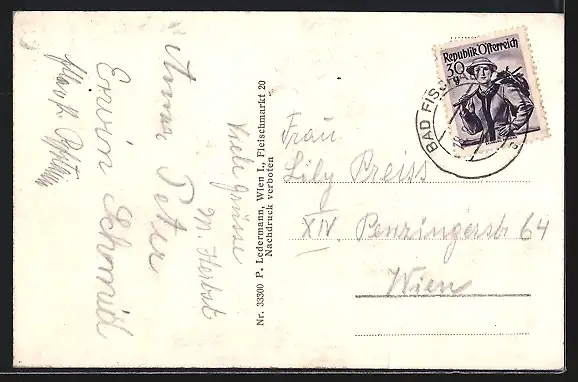 Viele Grüsse
M. Herbst
Anna Peter
Erwin Schmid
Nr. 33300 P. Ledermann, Wien I., Fleischmarkt 20
Nachdruck verboten
Republik Österreich
30
BAD
Frau
Lily Preiss
XIV. Penzingerstr 64
Wien